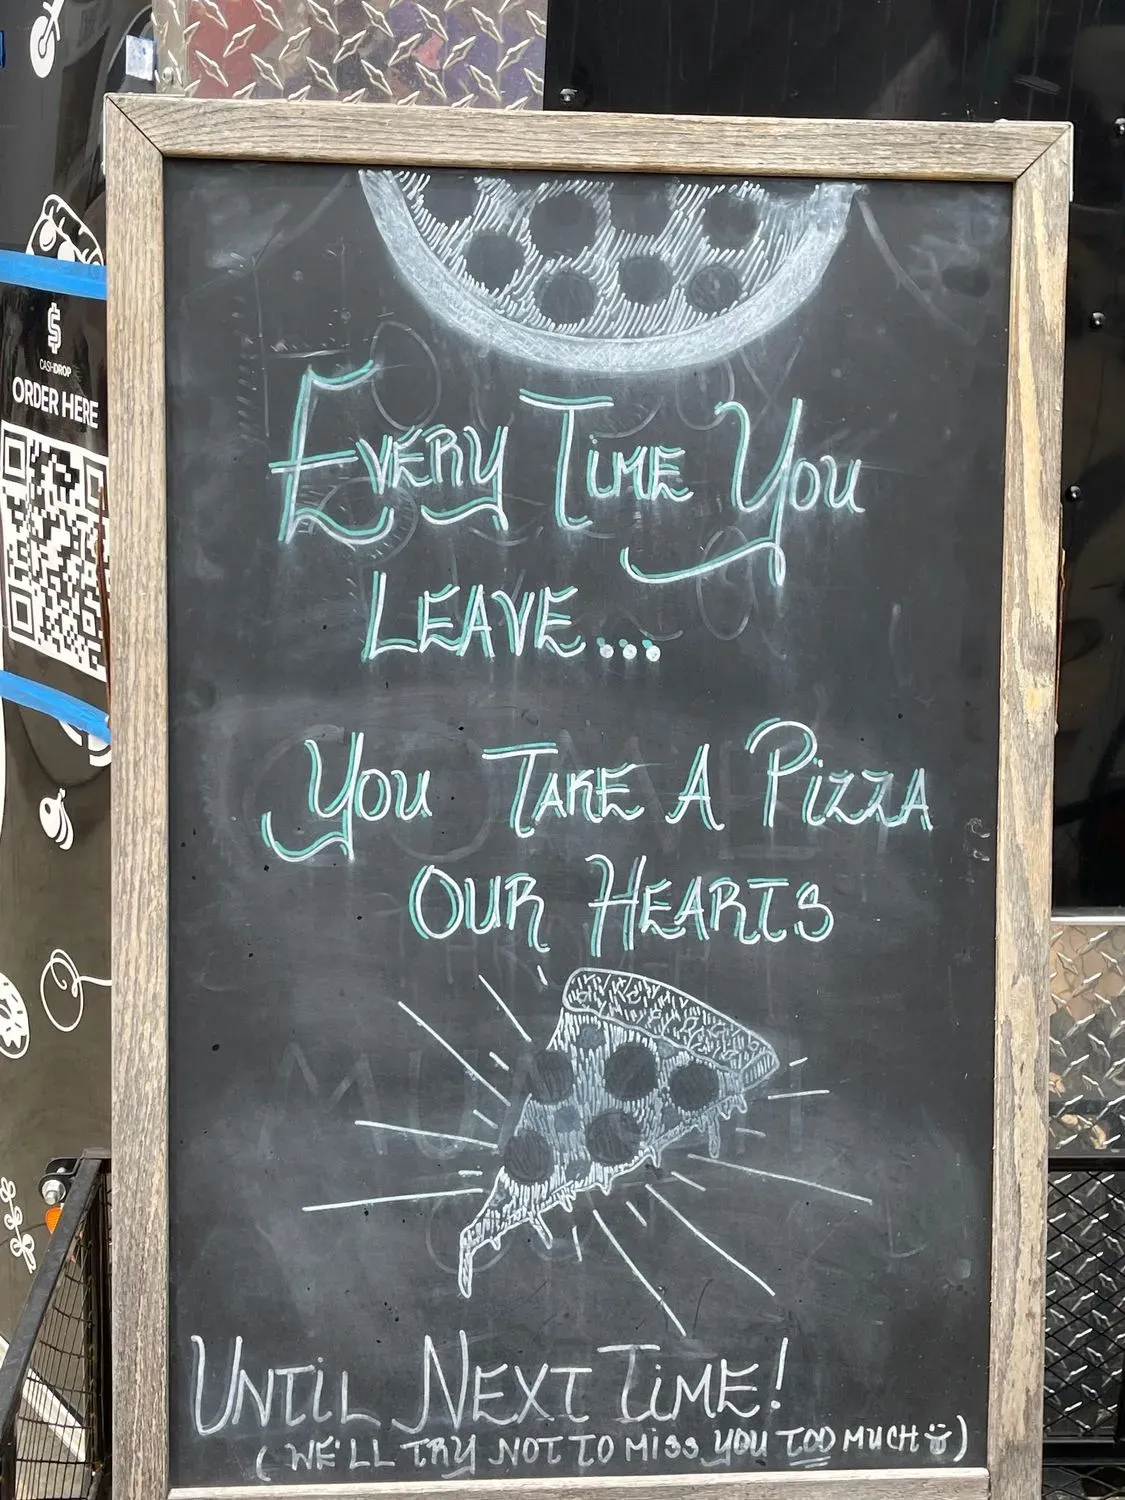 $
CASHDROP
ORDER HERE
EVERY TIME YOU
LEAVE...
YOU TAKE A PIZZA
OUR HEARTS
UNTIL NEXT TIME!
(WE'LL TRY NOT TO MISS YOU TOO MUCH)